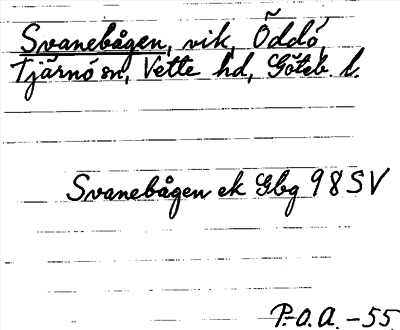 Svanebågen, vik, Öddö,
Tjärnö sn, Vette hd, Göteb. l.
Svanebågen ek Gbg 98 SV
P.-O.A. -55